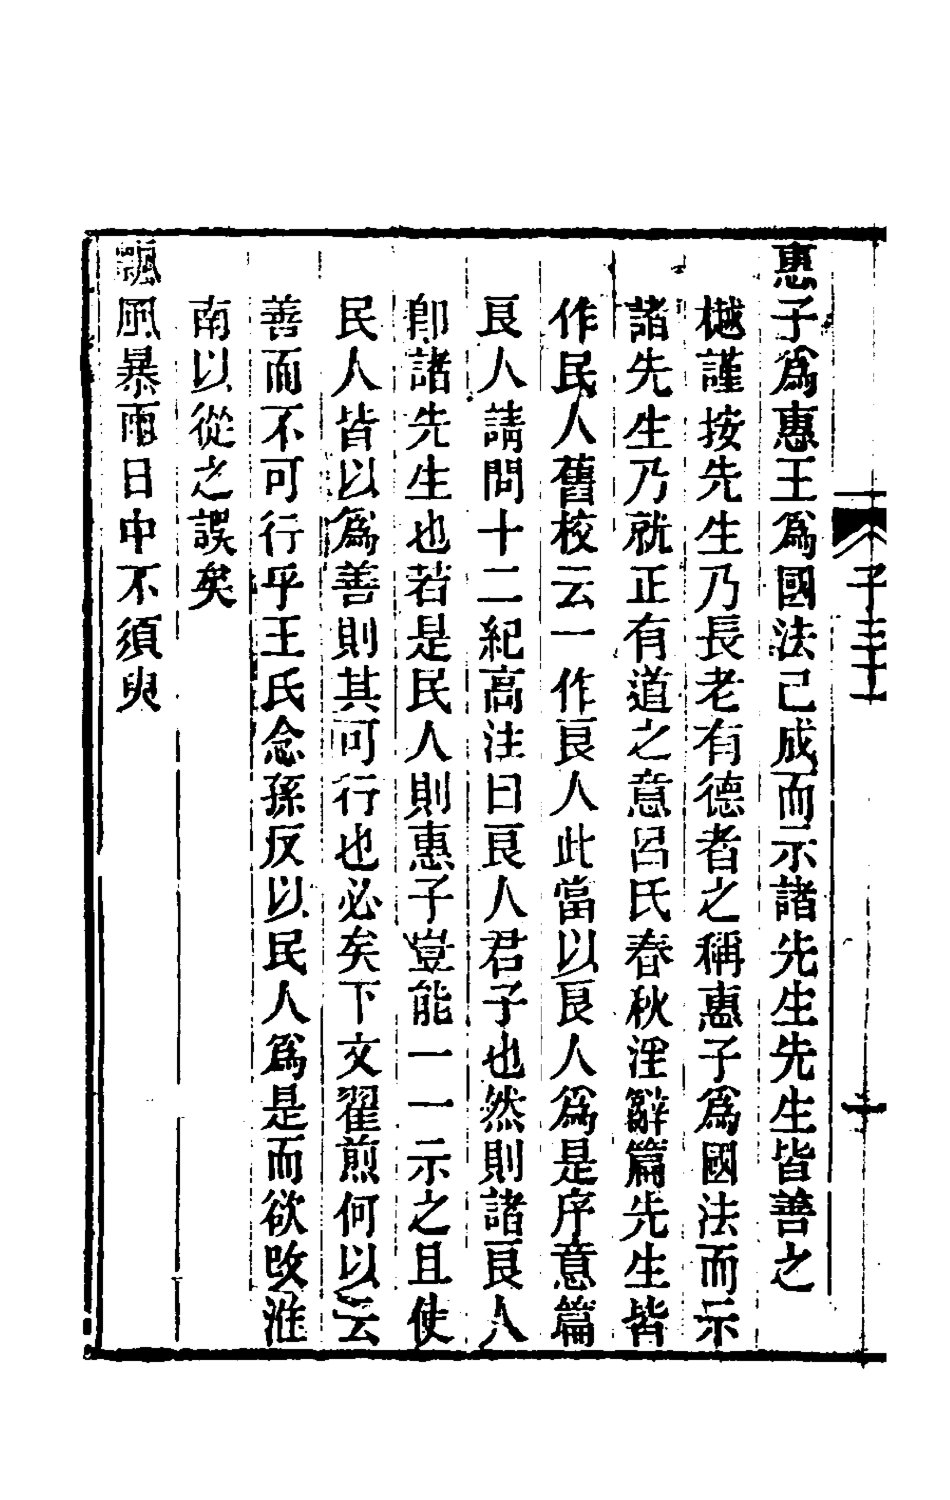 子三十一
十
惠子爲惠王爲國法已成而示諸先生先生皆善之
樾謹按先生乃長老有德者之稱惠子爲國法而示
諸先生乃就正有道之意呂氏春秋淫辭篇先生皆
作民人舊校云一作良人此當以良人爲是序意篇
良人請問十二紀高注曰良人君子也然則諸良人
卽諸先生也若是民人則惠子豈能一一示之且使
民人皆以爲善則其可行也必矣下文翟煎何以云
善而不可行乎王氏念孫反以民人爲是而欲改淮
南以從之誤矣
飄風暴雨日中不須臾